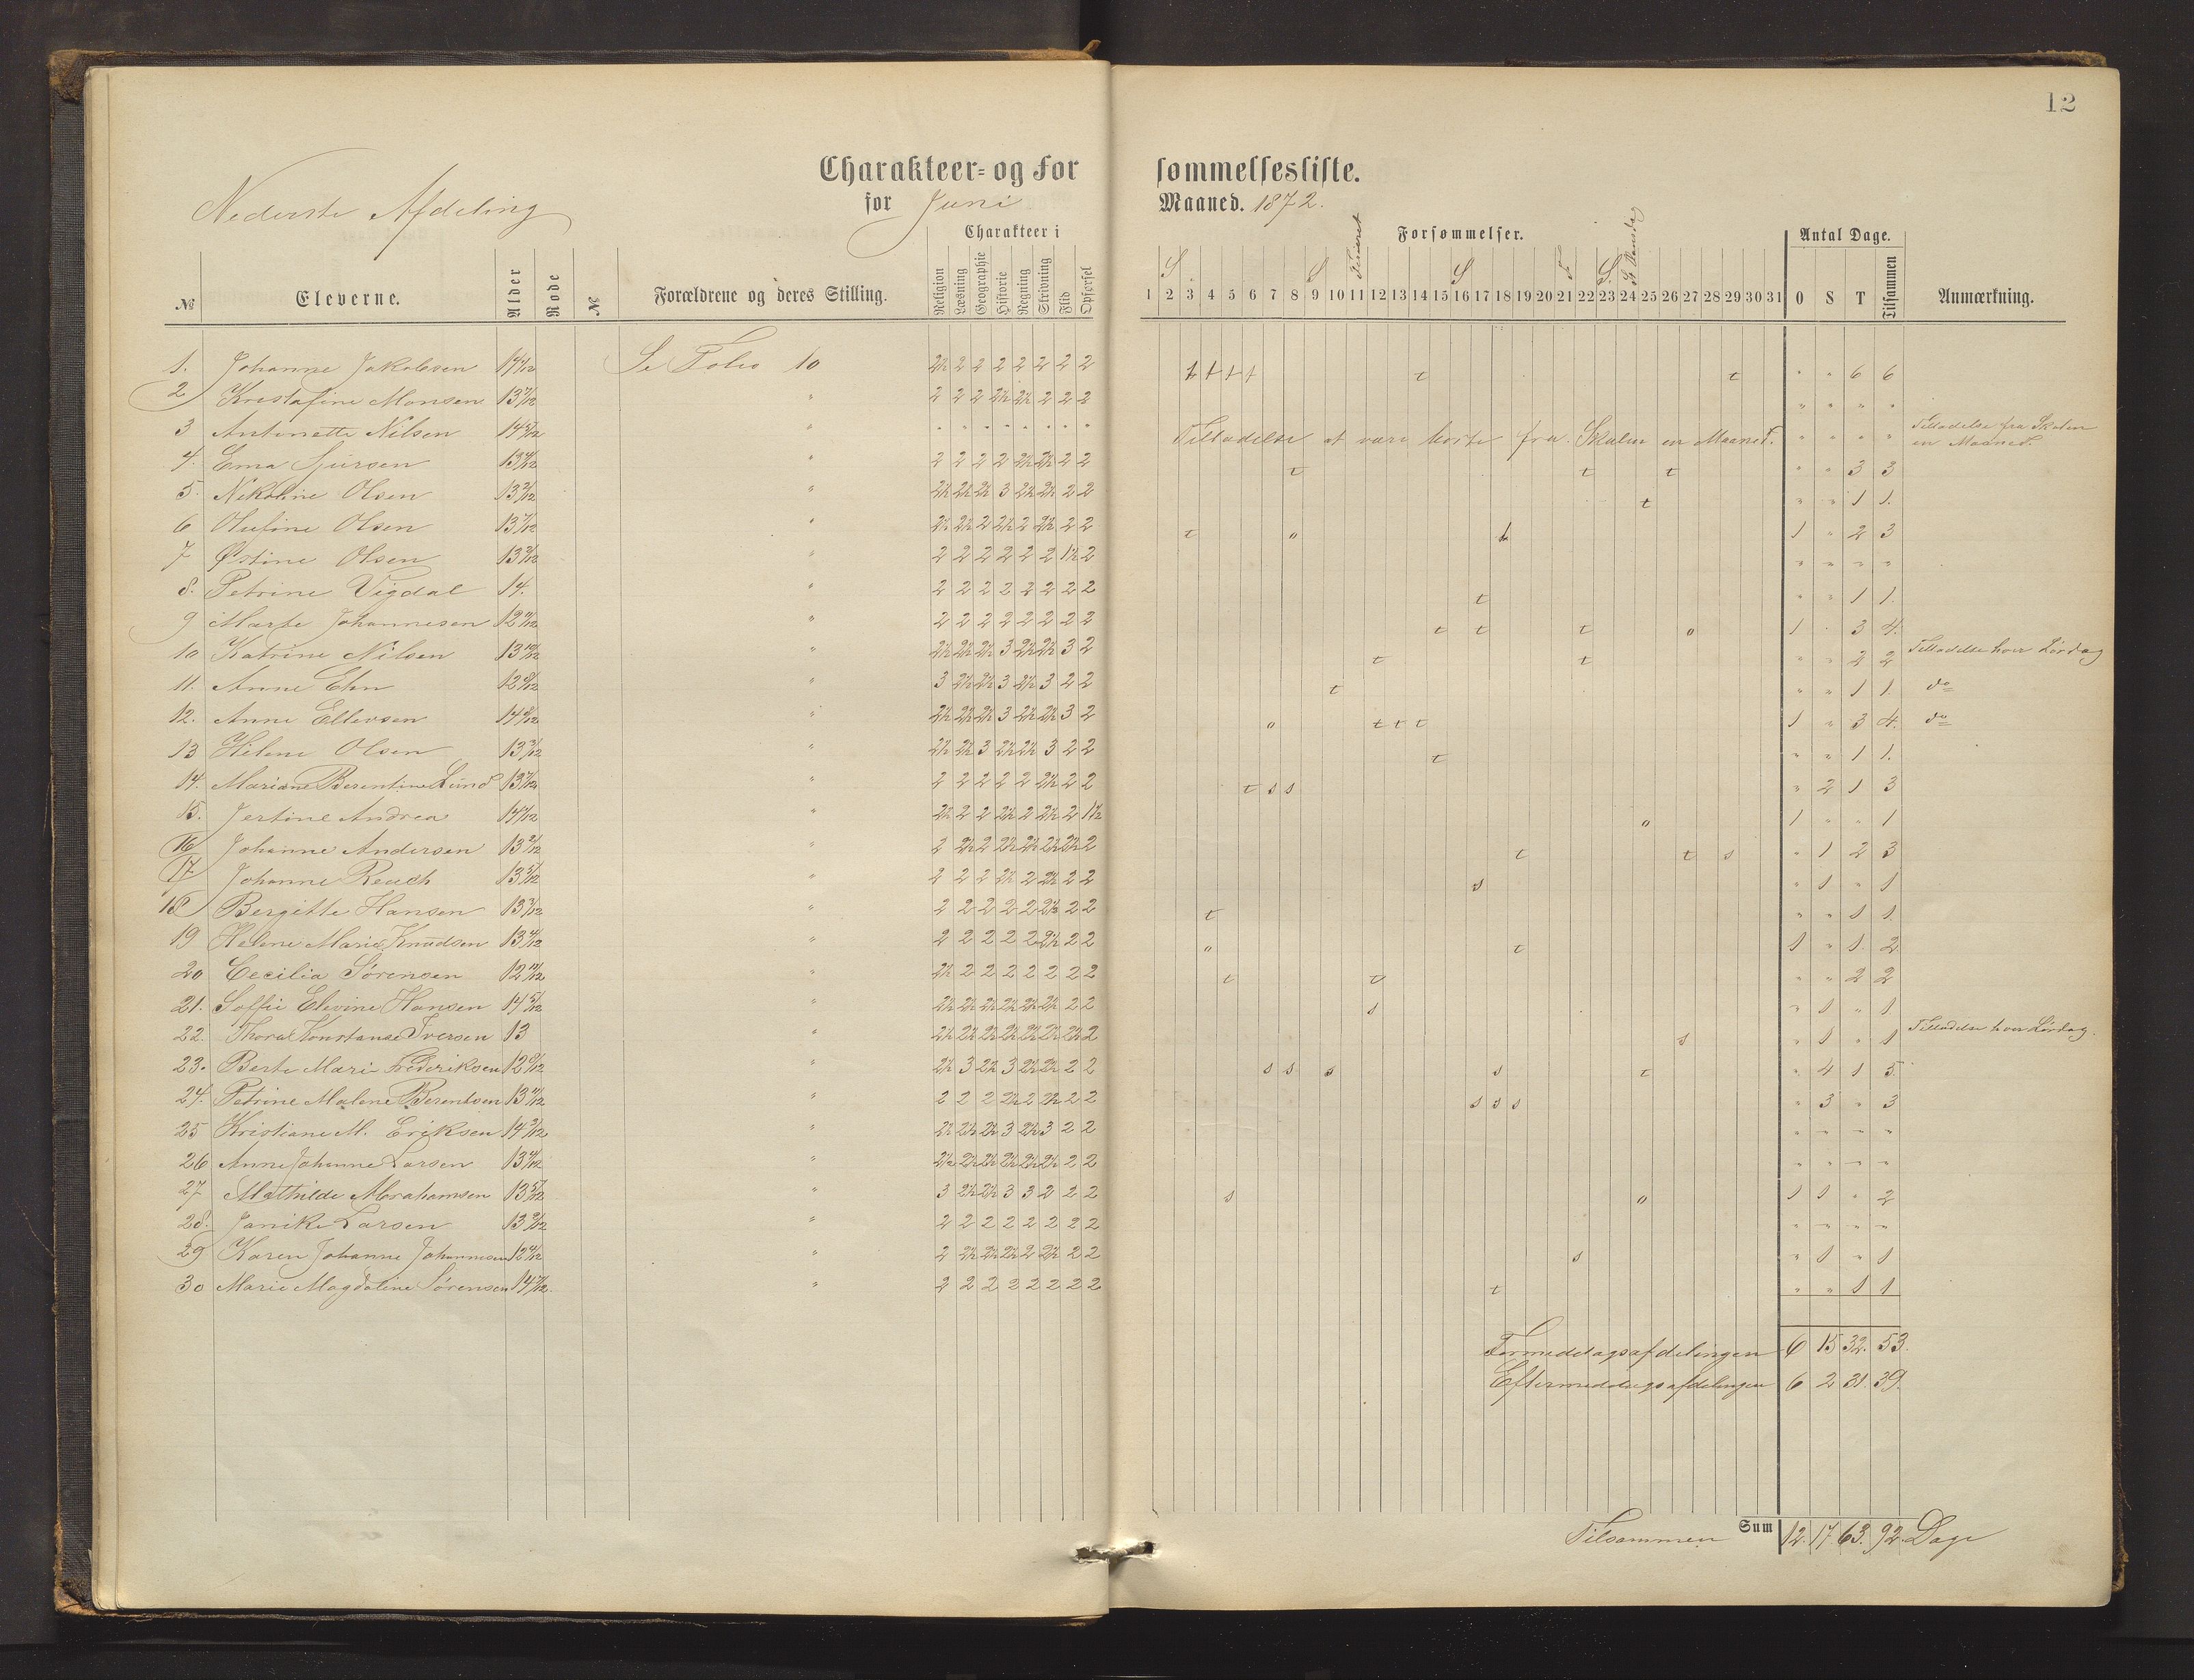 12
Charakteer- og Forsømmelsesliste.
Nederste Afdeling
for Juni Maaned. 1872.
Charakteer i
Forsømmelser.
Antal Dage.
№ Eleverne. Alder Rode № Forældrene og deres Stilling. Religion Læsning Geographie Historie Regning Skrivning Flid Opførsel 1 2 3 4 5 6 7 8 9 10 11 12 13 14 15 16 17 18 19 20 21 22 23 24 25 26 27 28 29 30 31 O S T Tilsammen Anmærkning.
1. Johanne Jakobsen 14 1/12 Se Folio 10 2½ 2 2 2 2 2 2 2 t t t t t t " " 6 6
2 Kristofine Monsen 13 7/12 " 2 2 2 2½ 2½ 2 2 2 " " " "
3 Antonette Nilsen 14 5/12 " Tilladelse at være borte fra Skolen en Maaned. " " " " Tilladelse fra Skolen en Maaned.
4. Ema Sjursen " 2 2 2 2 2½ 2½ 2 2 t t t " " 3 3
5. Nikoline Olsen " 2½ 2½ 2½ 3 2½ 2½ 2 2 t " " 1 1.
6 Olufine Olsen 13 7/12 " 2½ 2½ 2 2½ 2 2½ 2 2 t o t 1 " 2 3
7 Østine Olsen " 2 2 2 2 2 2 1½ 2 " " " "
8. Petrine Vigdal 14. " 2 2 2 2 2 2 2 2 t " " 1 1.
9 Marte Johannesen 12 11/12 " 2 2 2 2 2 2 2 2 t t t o 1 " 3 4.
10 Katrine Nilsen 13 10/12 " 2½ 2½ 2½ 3 2½ 2½ 3 2 t t " " 2 2 Tilladelse hver Lørdag
11. Anne Ehn " 3 2½ 2½ 3 2½ 3 2 2 t " " 1 1. do
12. Anne Ellevsen " 2½ 2½ 2½ 3 2½ 2½ 3 2 o t t t 1 " 3 4. do
13 Helene Olsen 13 3/12 " 2½ 2½ 3 2½ 2½ 3 2 2 t " " 1 1.
14. Mariane Berentine Lund 13 7/12 " 2 2 2 2 2 2½ 2 2 t s s " 2 1 3
15. Jertine Andrea 14 1/12 " 2½ 2 2 2½ 2 2½ 2 1½ o 1 " " 1
16 Johanne Andersen " 2 2½ 2 2½ 2½ 2½ 2½ 2 t t s " 1 2 3
17 Johanne Reach 13 5/12 " 2 2 2 2½ 2 2½ 2 2 s " 1 " 1
18 Bergitte Hansen 13 3/12 " 2 2 2 2 2 2½ 2 2 t " " 1 1.
19 Helene Marie Knudsen " 2 2 2 2 2 2½ 2 2 o t 1 " 1. 2
20 Cecilia Sørensen 12 11/12 " 2½ 2 2 2 2 2 2 2 t t " " 2 2
21. Soffie Elevine Hansen 14 5/12 " 2½ 2½ 2½ 2½ 2½ 2½ 2 2 s " 1 " 1
22. Thora Konstanse Iversen 13 " 2½ 2½ 2½ 2½ 2½ 2½ 2½ 2 s " 1 " 1 Tilladelse hver Lørdag.
23. Berte Mari Frederiksen " 2½ 3 2½ 3 2½ 2½ 2 2 s s s s t " 4 1 5
24. Petrine Malene Berentsen " 2 2 2 2½ 2 2½ 2 2 s s s " 3 " 3
25 Kristiane M. Eriksen 14 3/12 " 2½ 2½ 2½ 3 2½ 3 2 2 " " " "
26 Anne Johanne Larsen " 2½ 2½ 2½ 2½ 2½ 2½ 2 2 " " " "
27 Mathilde Abrahamsen 13 5/12 " 3 2½ 2½ 3 3 2 2 2 s o 1 1 " 2
28. Janike Larsen " 2 2 2 2 2 2 2 2 " " " "
29 Karen Johanne Johannesen " 2 2½ 2½ 2½ 2 2½ 2 2 s " 1 " 1
30 Marie Magdaline Sørensen " 2 2 2 2 2 2 2 2 t " " 1 1
Formiddagsafdelingen 6 15 32. 53.
Eftermiddagsafdelingen 6 2 31. 39.
Tilsammen Sum 12. 17. 63. 92. Dage